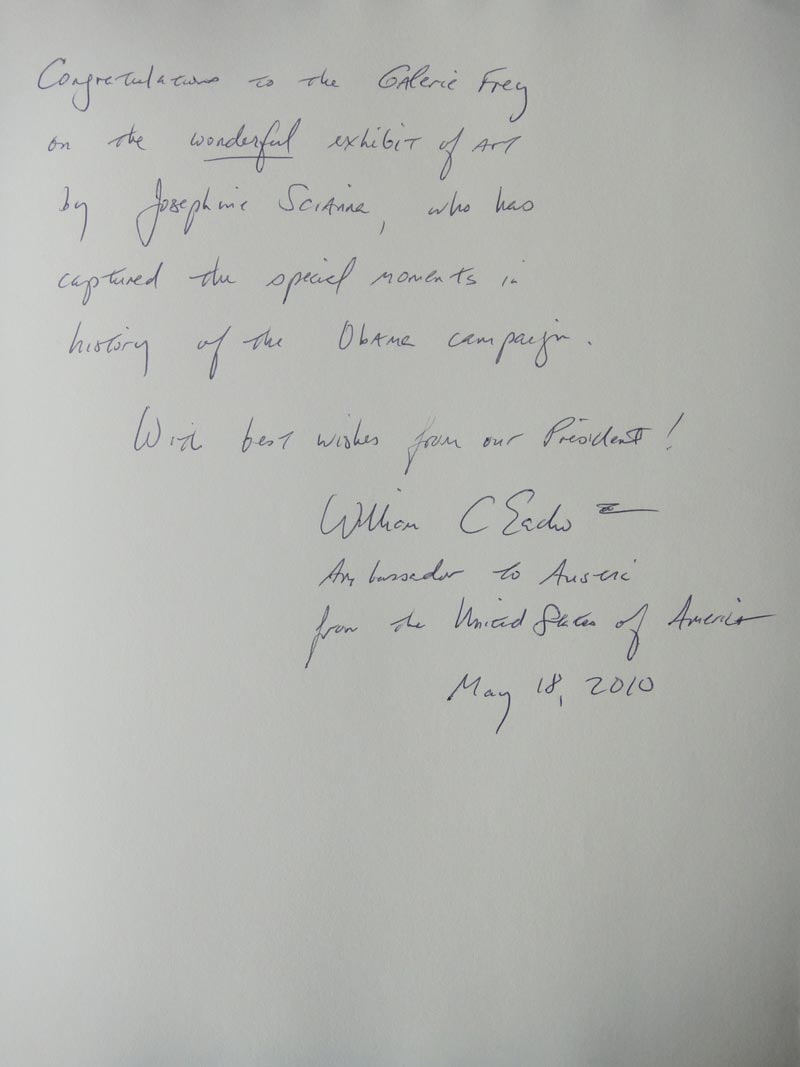 Congratulations to the Galerie Frey
on the wonderful exhibit of Art
by Josephine Scianna, who has
captured the special moments in
history of the Obama campaign.
With best wishes from our President!
William C Eacho III
Ambassador to Austria
from the United States of America
May 18, 2010